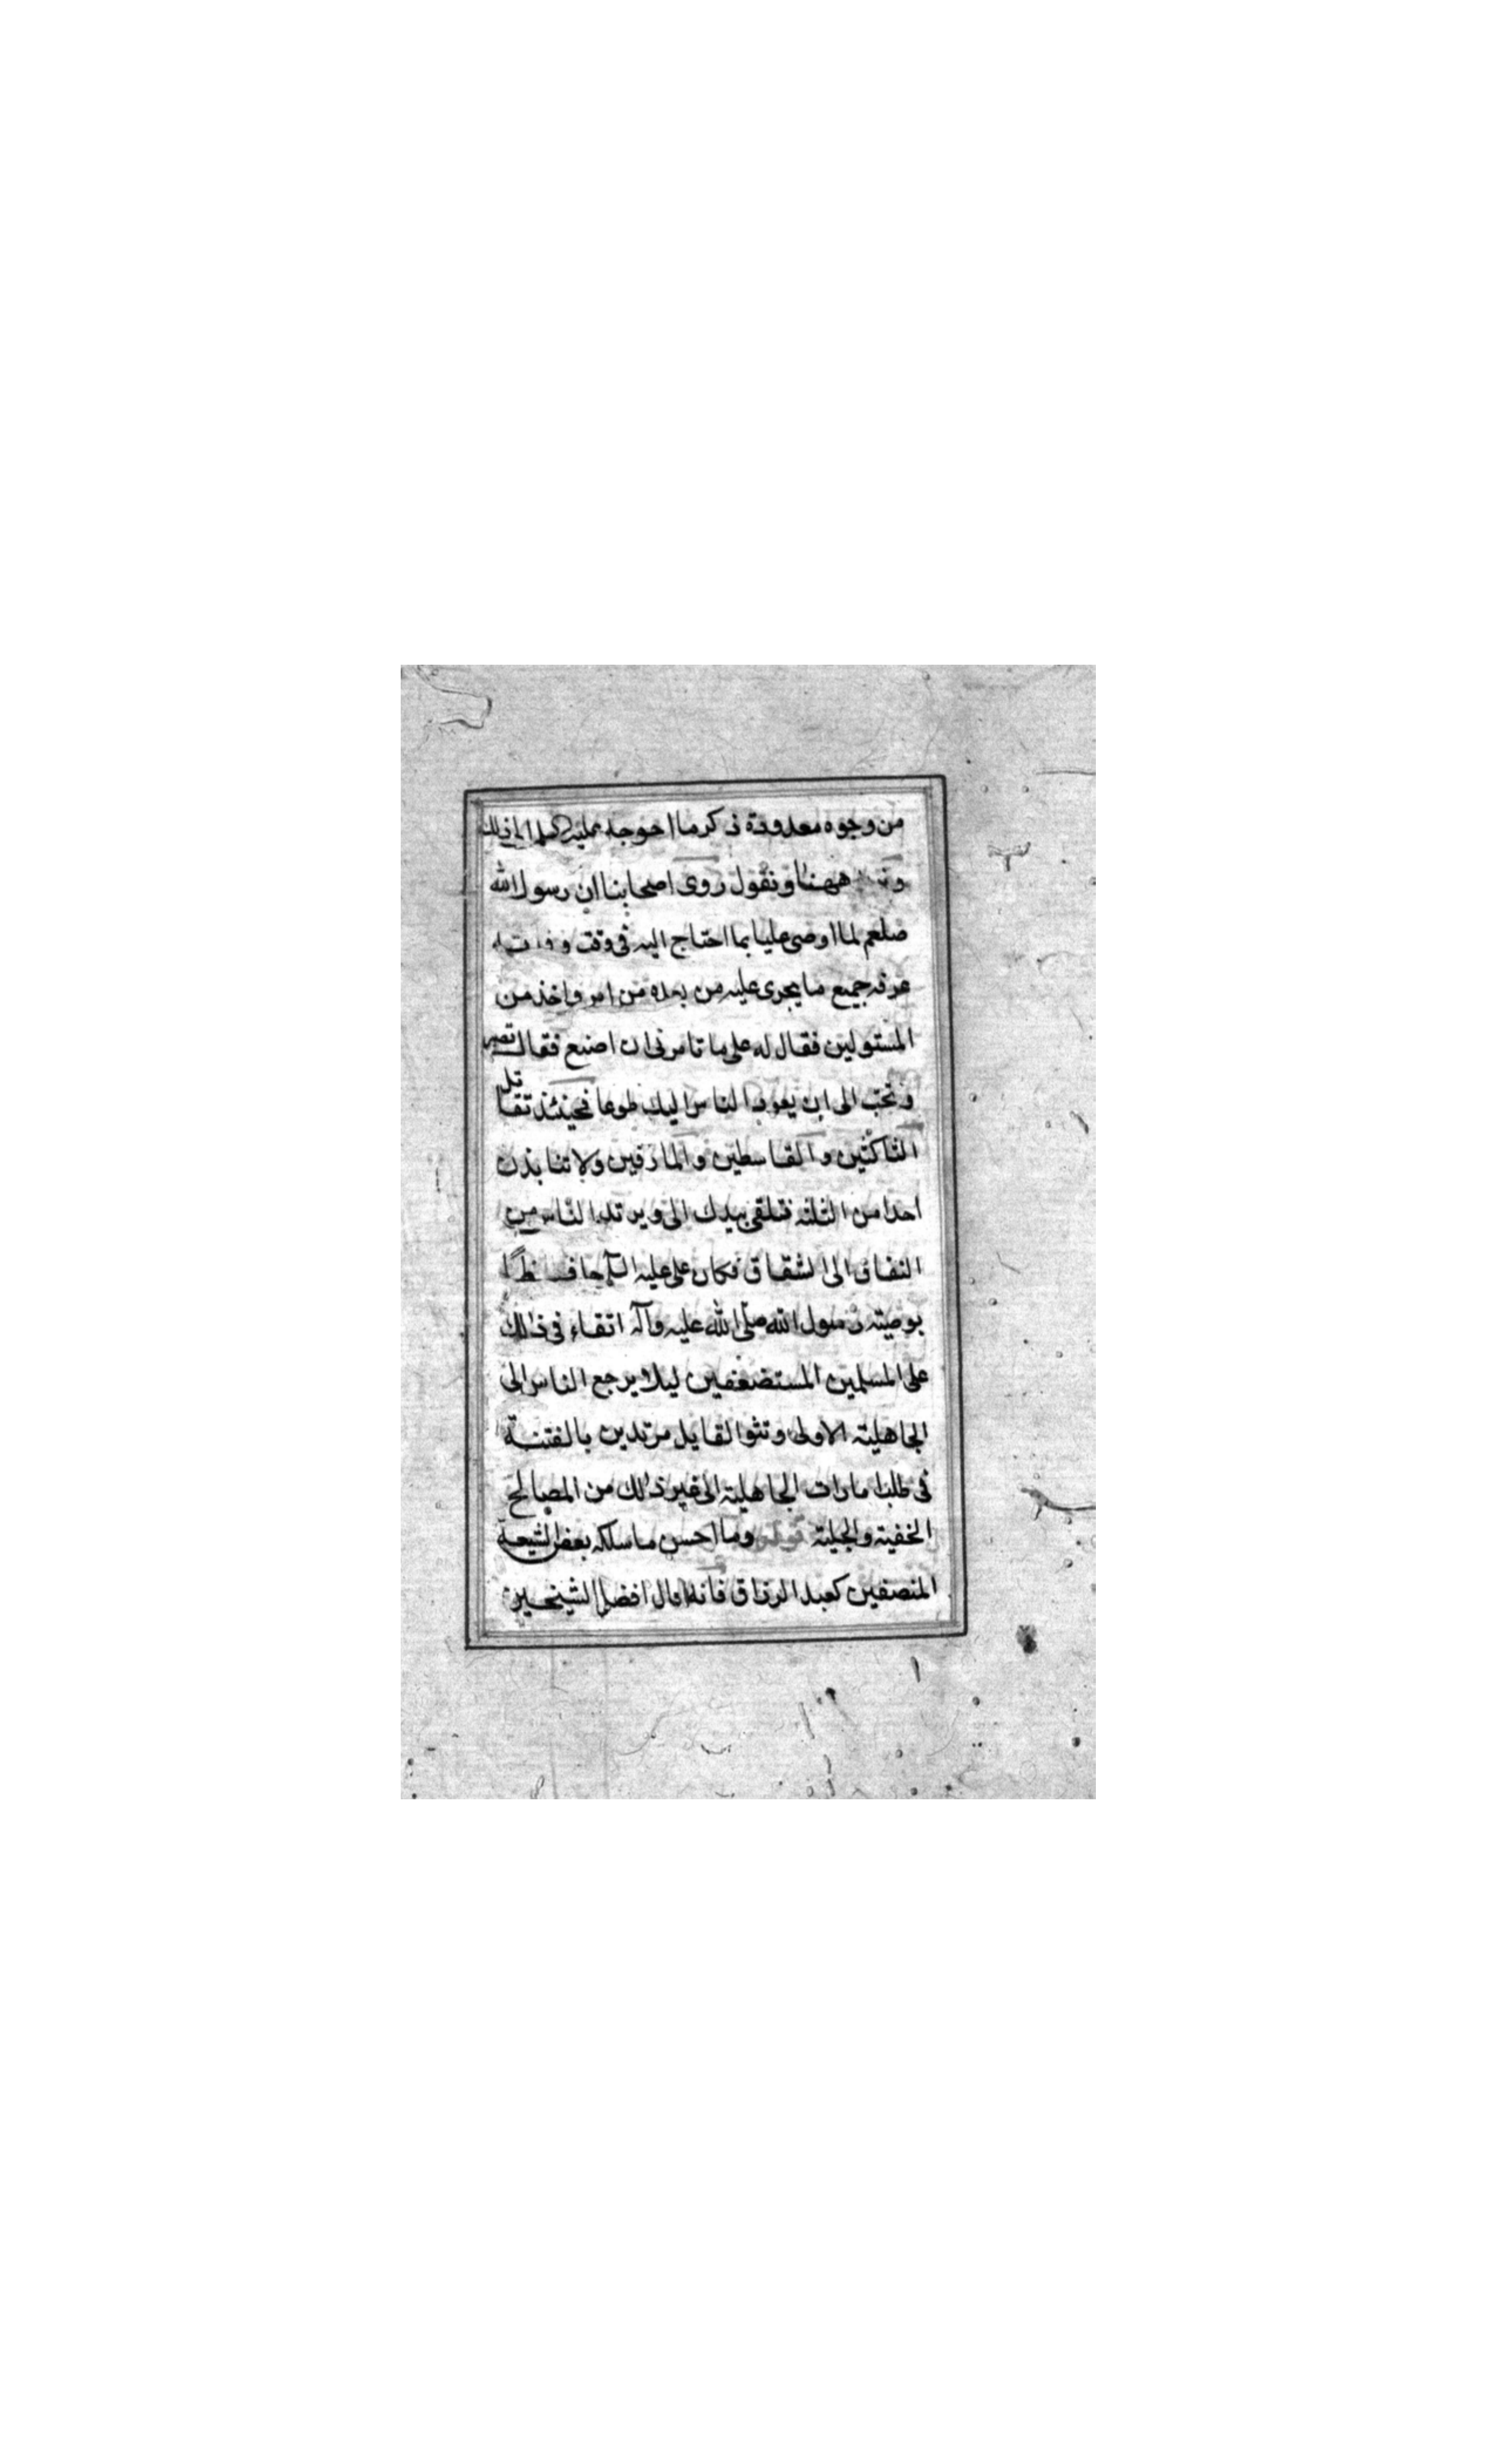 من وجوه معدودة ذكر ما احوجه عليه الى ذلك
ههنا ونقول روى اصحابنا ان رسول الله
صلعم لما اوصى عليا بما احتاج اليه فى وقت وفاته
عرفه جميع ما يجرى عليه من بعده من امر واخذ من
المستولين فقال له على ما تامرنى ان اصنع فقال تصبر
وتحتسب الى ان يعود الناس اليك طوعا فحينئذ تقاتل
الناكثين والقاسطين والمارقين ولا تنابذن
احدا من الثلثه فتلقى بيدك الى ويرتد الناس من
النفاق الى الشقاق فكان على عليه السلم حافظا
بوصيته رسول الله صلى الله عليه وآله اتقاء فى ذلك
على المسلمين المستضعفين ليلا يرجع الناس الى
الجاهلية الاولى وتثوا لقايل مرتدين بالفتنة
فى طلب امارات الجاهلية الى غير ذلك من المصالح
الخفية والجلية قوله وما احسن ما سلكه بعض الشيعة
المنصفين كعبد الرزاق فانه قال افضل الشيخين